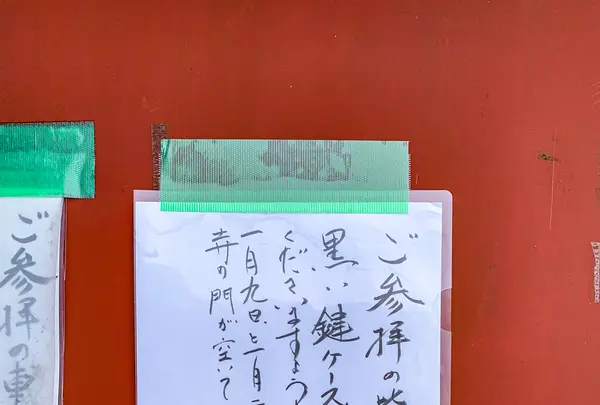 ご参拝の皆
黒い鍵ケース
くださいますよう
一月九日、と一月二
寺の門が空いて
ご参拝の車